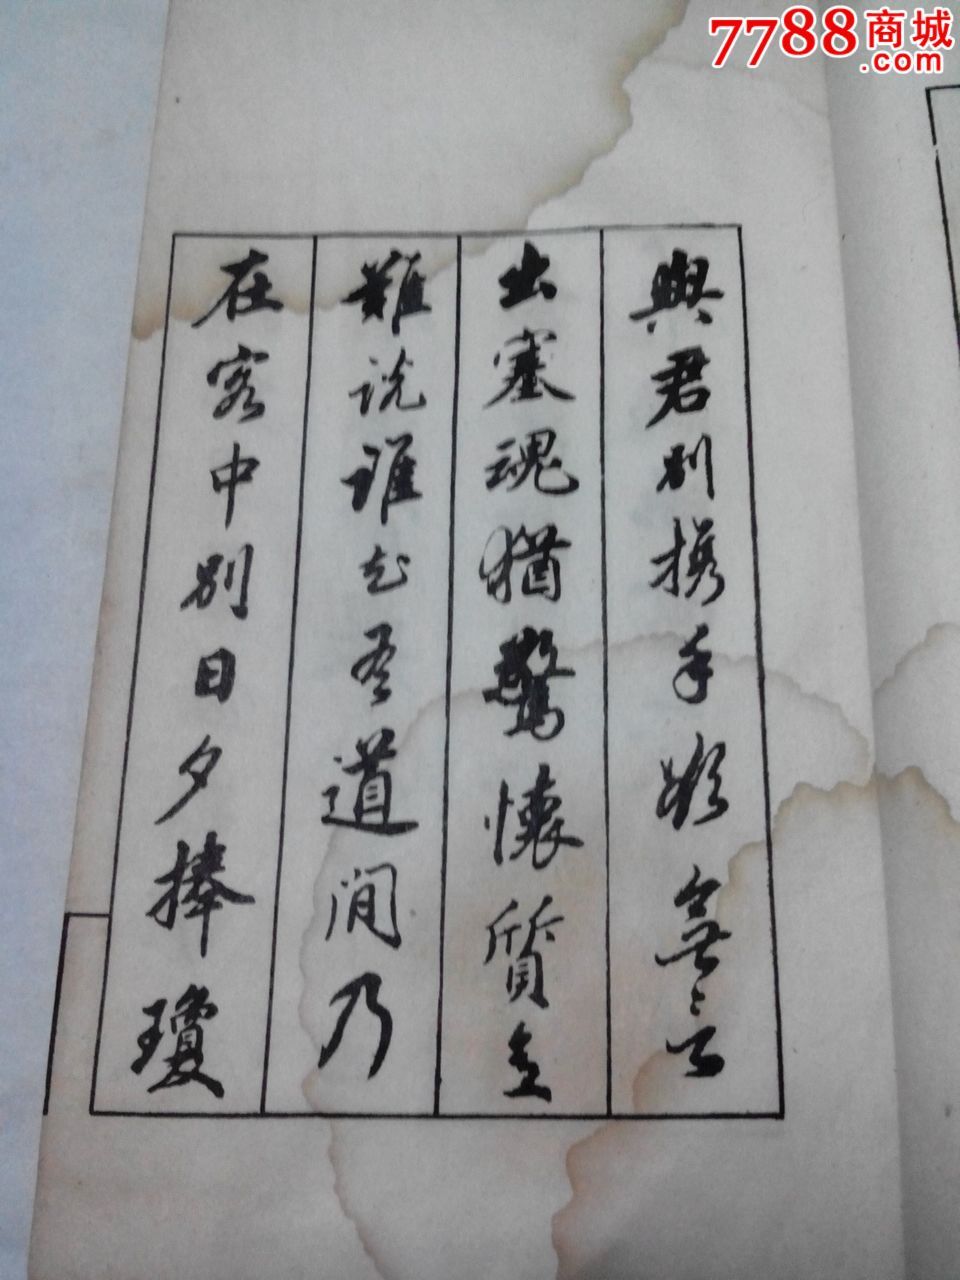 與君別携手無言
出塞魂猶驚懷質意
難說誰知吾道間乃
在客中別日夕捧瓊
7788商城
.com